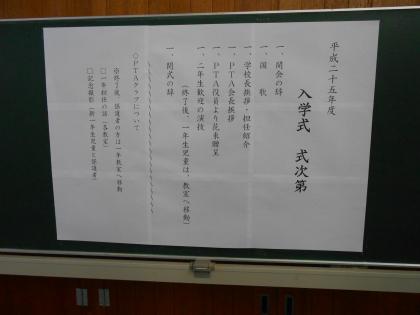 平成二十五年度
入学式　式次第
一、開会の辞
一、国　歌
一、学校長挨拶・担任紹介
一、ＰＴＡ会長挨拶
一、ＰＴＡ役員より花束贈呈
一、二年生歓迎の演技
（終了後、一年生児童は、教室へ移動）
一、閉式の辞
〜〜〜〜〜〜〜〜〜〜〜〜〜〜
◇ＰＴＡクラブについて
※終了後、保護者の方は一年教室へ移動
□一年担任の話（各教室）
□記念撮影（新一年生児童と保護者）